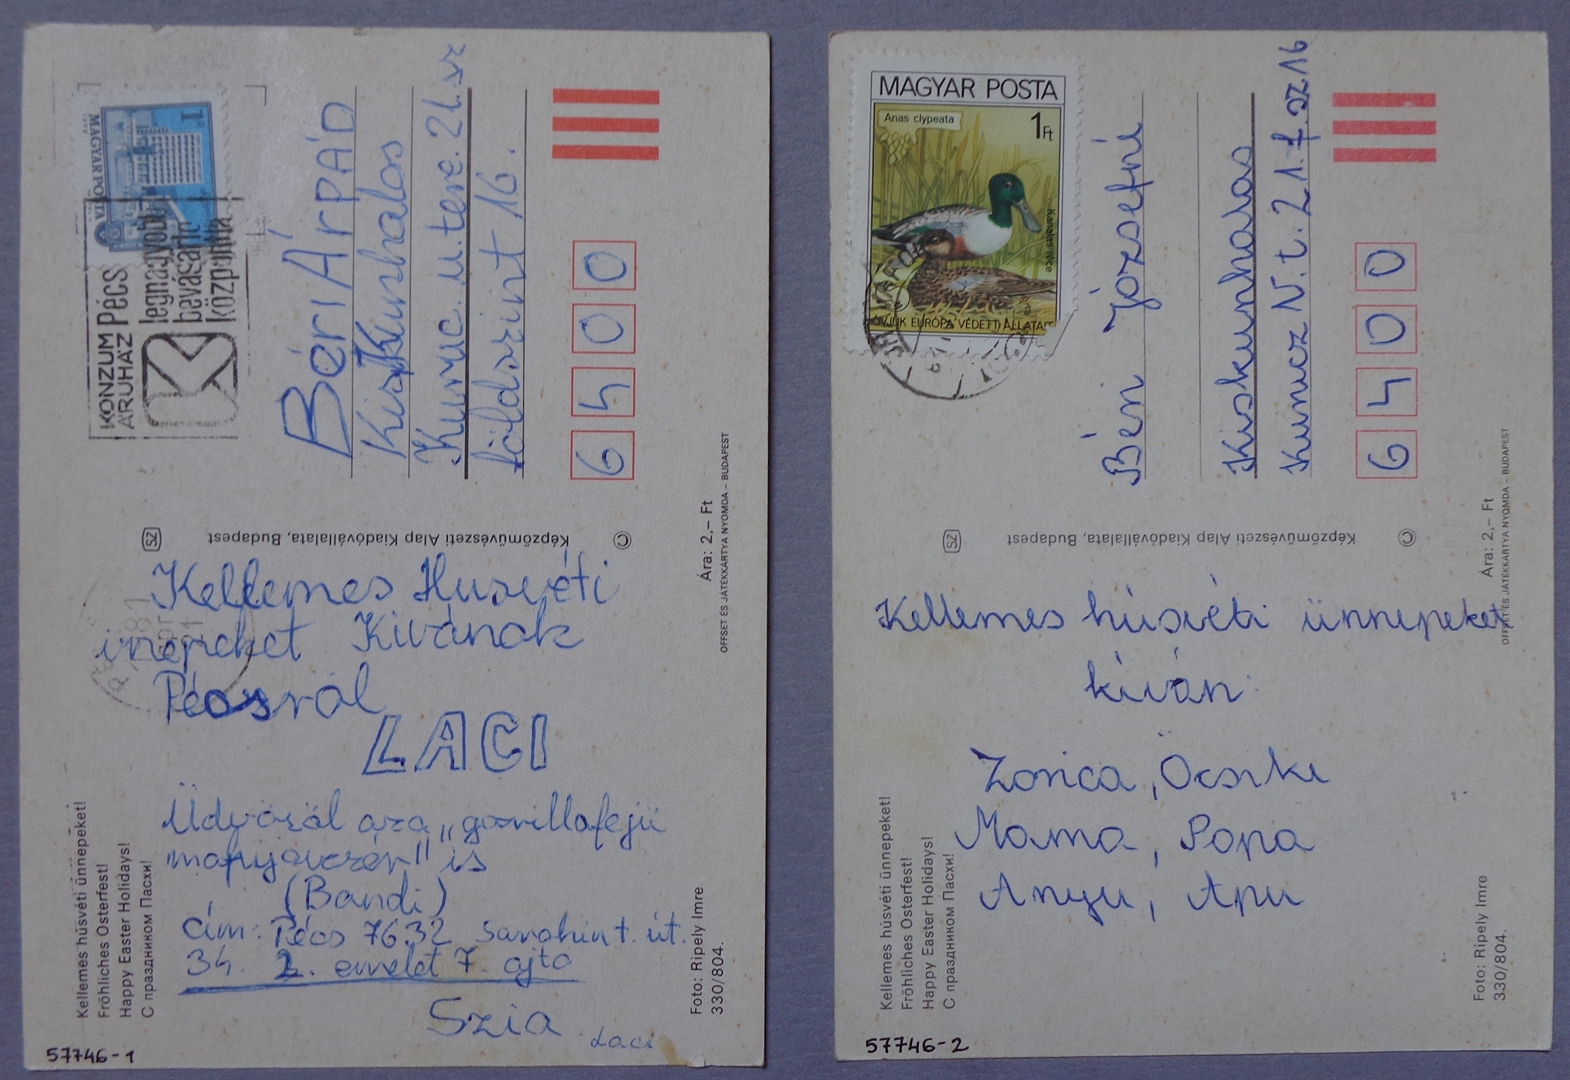 MAGYAR POSTA
1Ft
KONZUM Pécs
ÁRUHÁZ
legnagyobb
bevásárló
központja
Béri ÁRPÁD
Kiskunhalas
Kunuc. u. tere. 21. sz
földszint 16.
6400
SZ
Képzőművészeti Alap Kiadóvállalata, Budapest
©
Ára: 2,– Ft
OFFSET ÉS JÁTÉKKÁRTYA NYOMDA – BUDAPEST
Kellemes Husvéti
ünepeket Kivánok
Pécsről
LACI
Üdvözöl aza „gorillafejü
is
(Bandi)
Cím: Pécs 7632 út.
34. 2. emelet 7. ajto
Szia
Laci
Kellemes húsvéti ünnepeket!
Fröhliches Osterfest!
Happy Easter Holidays!
С праздником Пасхи!
Foto: Ripely Imre
330/804.
57746-1
MAGYAR POSTA
Anas clypeata
1Ft
Kanalas réce
ÓVJUK EURÓPA VÉDETT ÁLLATAIT
Béri Józsefné
Kiskunhalas
Kunucz N. t. 21. f. sz 16
6400
SZ
Képzőművészeti Alap Kiadóvállalata, Budapest
©
Ára: 2,– Ft
OFFSET ÉS JÁTÉKKÁRTYA NYOMDA – BUDAPEST
Kellemes húsvéti ünnepeket
kíván
Zorica, Öcsike
Mama, Papa
Anyu, Apu
Kellemes húsvéti ünnepeket!
Fröhliches Osterfest!
Happy Easter Holidays!
С праздником Пасхи!
Foto: Ripely Imre
330/804.
57746-2